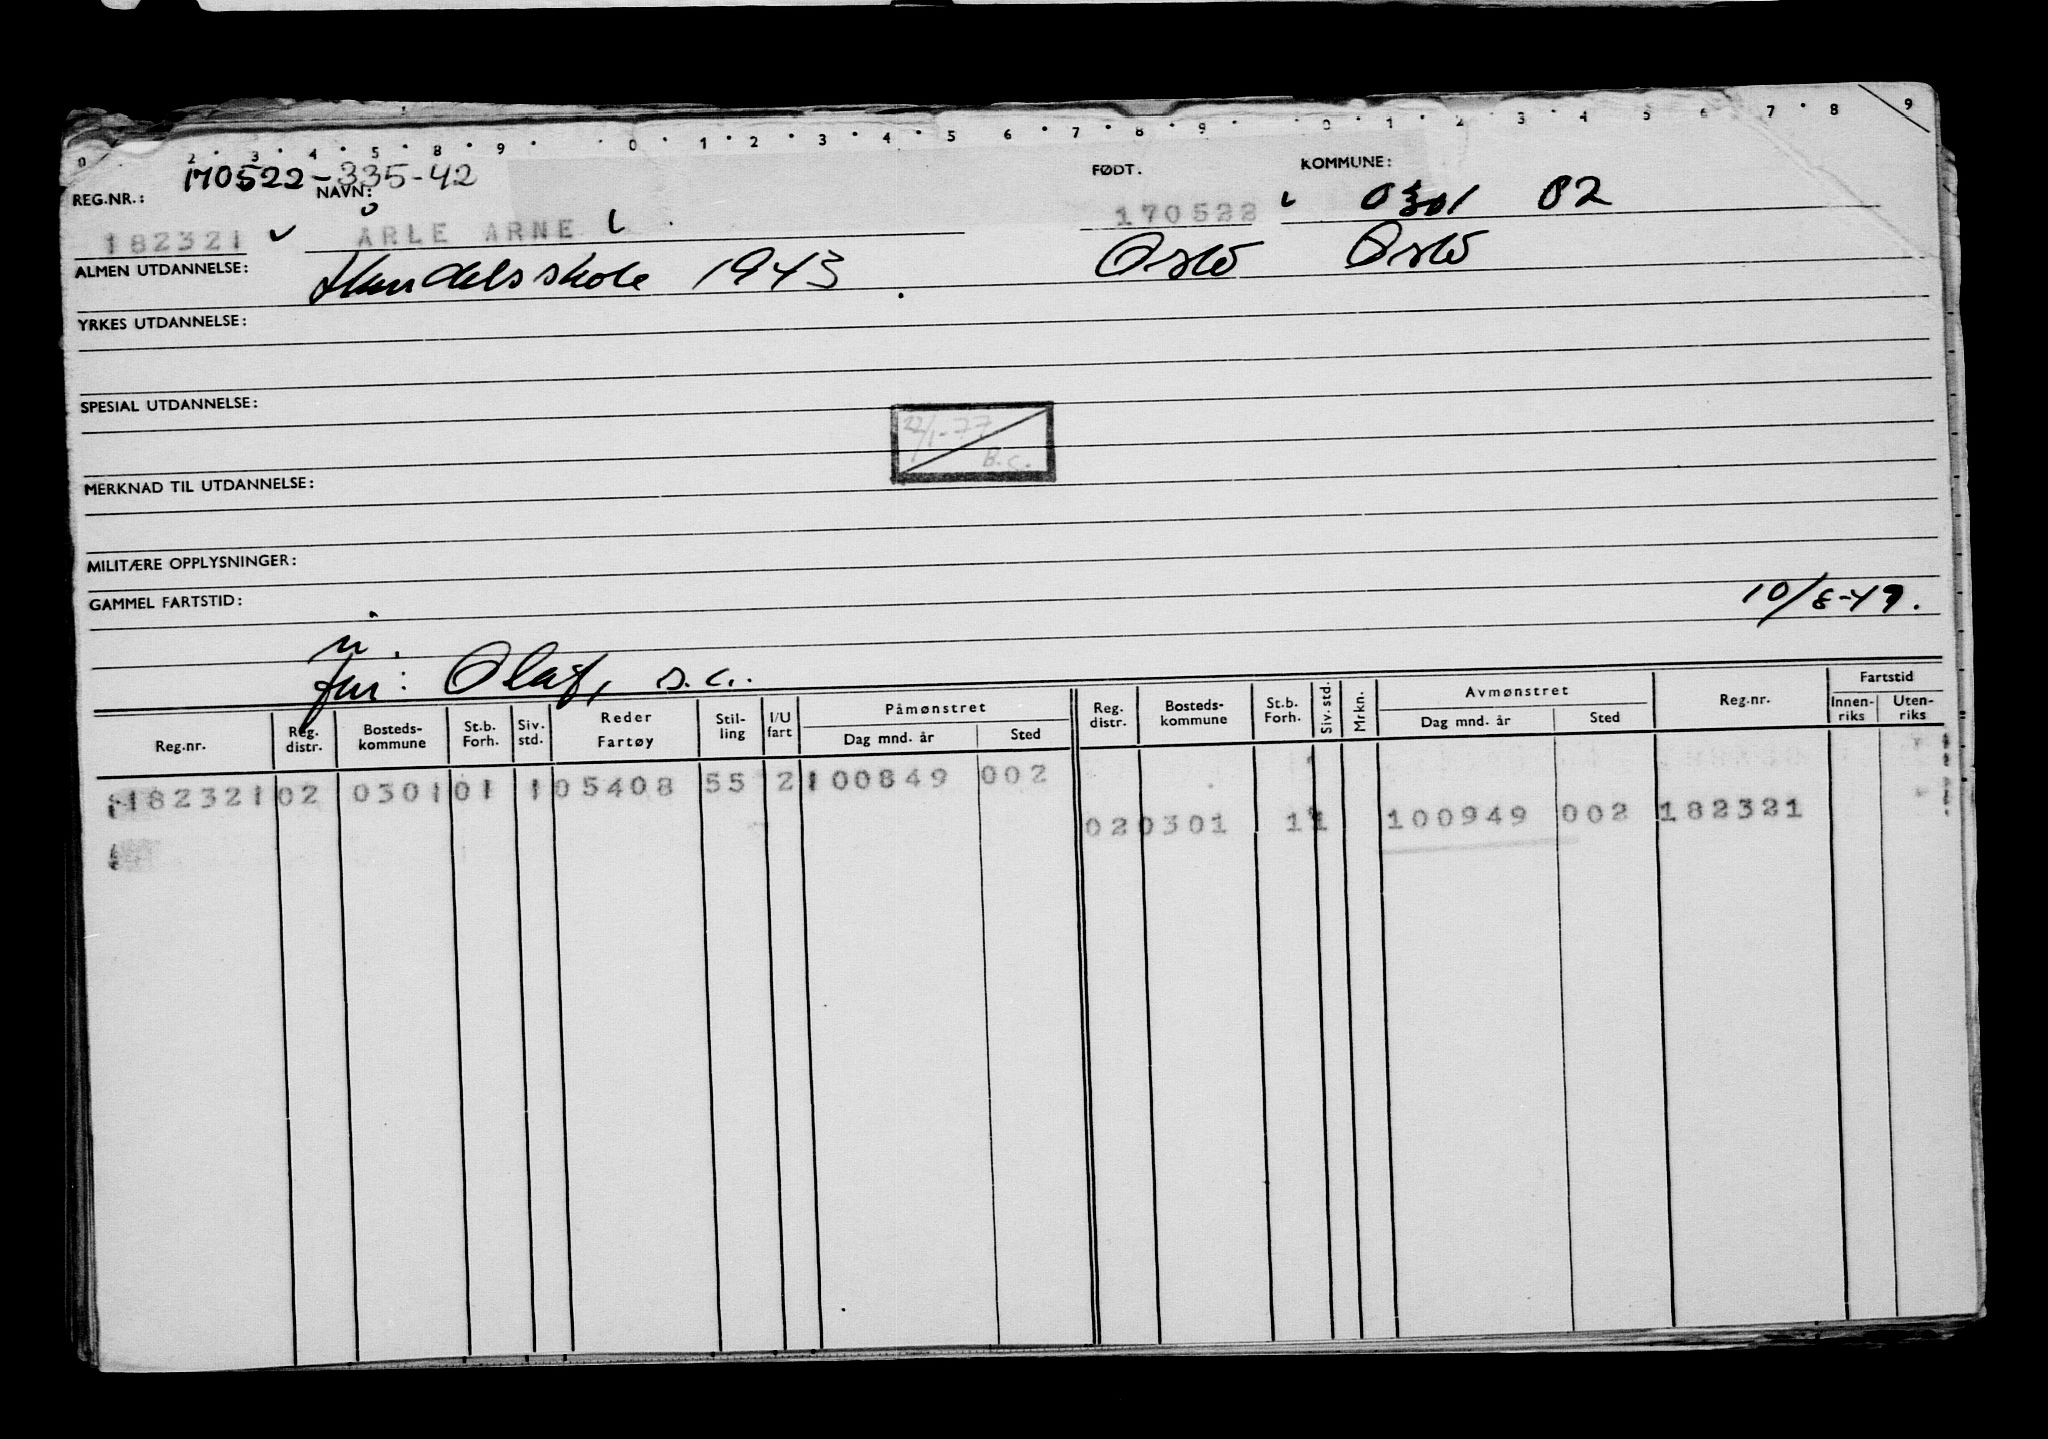 0 2 · 3 · 4 · 5 · 8 · 9 · · 0 · 1 · 2 · 3 · 4 · 5 6 · 7 · 8 · 9 · 0 · 1 · 2 · 3 · 4 5 6 · 7 · 8 9
170522-335-42
REG.NR.: NAVN: FØDT. KOMMUNE:
182321 ÅRLE ARNE 170522 0301 02
ALMEN UTDANNELSE: Handelsskole 1943. Oslo Oslo
YRKES UTDANNELSE:
SPESIAL UTDANNELSE:
27/1-77
B.C.
MERKNAD TIL UTDANNELSE:
MILITÆRE OPPLYSNINGER:
GAMMEL FARTSTID: 10/8-49.
far: Olaf, s.c.
Reg.nr. Reg. distr. Bosteds-kommune St.b. Forh. Siv. std. Reder Fartøy Stil-ling I/U fart Påmønstret Dag mnd. år Sted Reg. distr. Bosteds-kommune St.b. Forh. Siv. std. Mrkn. Avmønstret Dag mnd. år Sted Reg.nr. Fartstid Innen-riks Uten-riks
182321 02 0301 01 1 05408 55 2 100849 002
02 0301 1 1 100949 002 182321